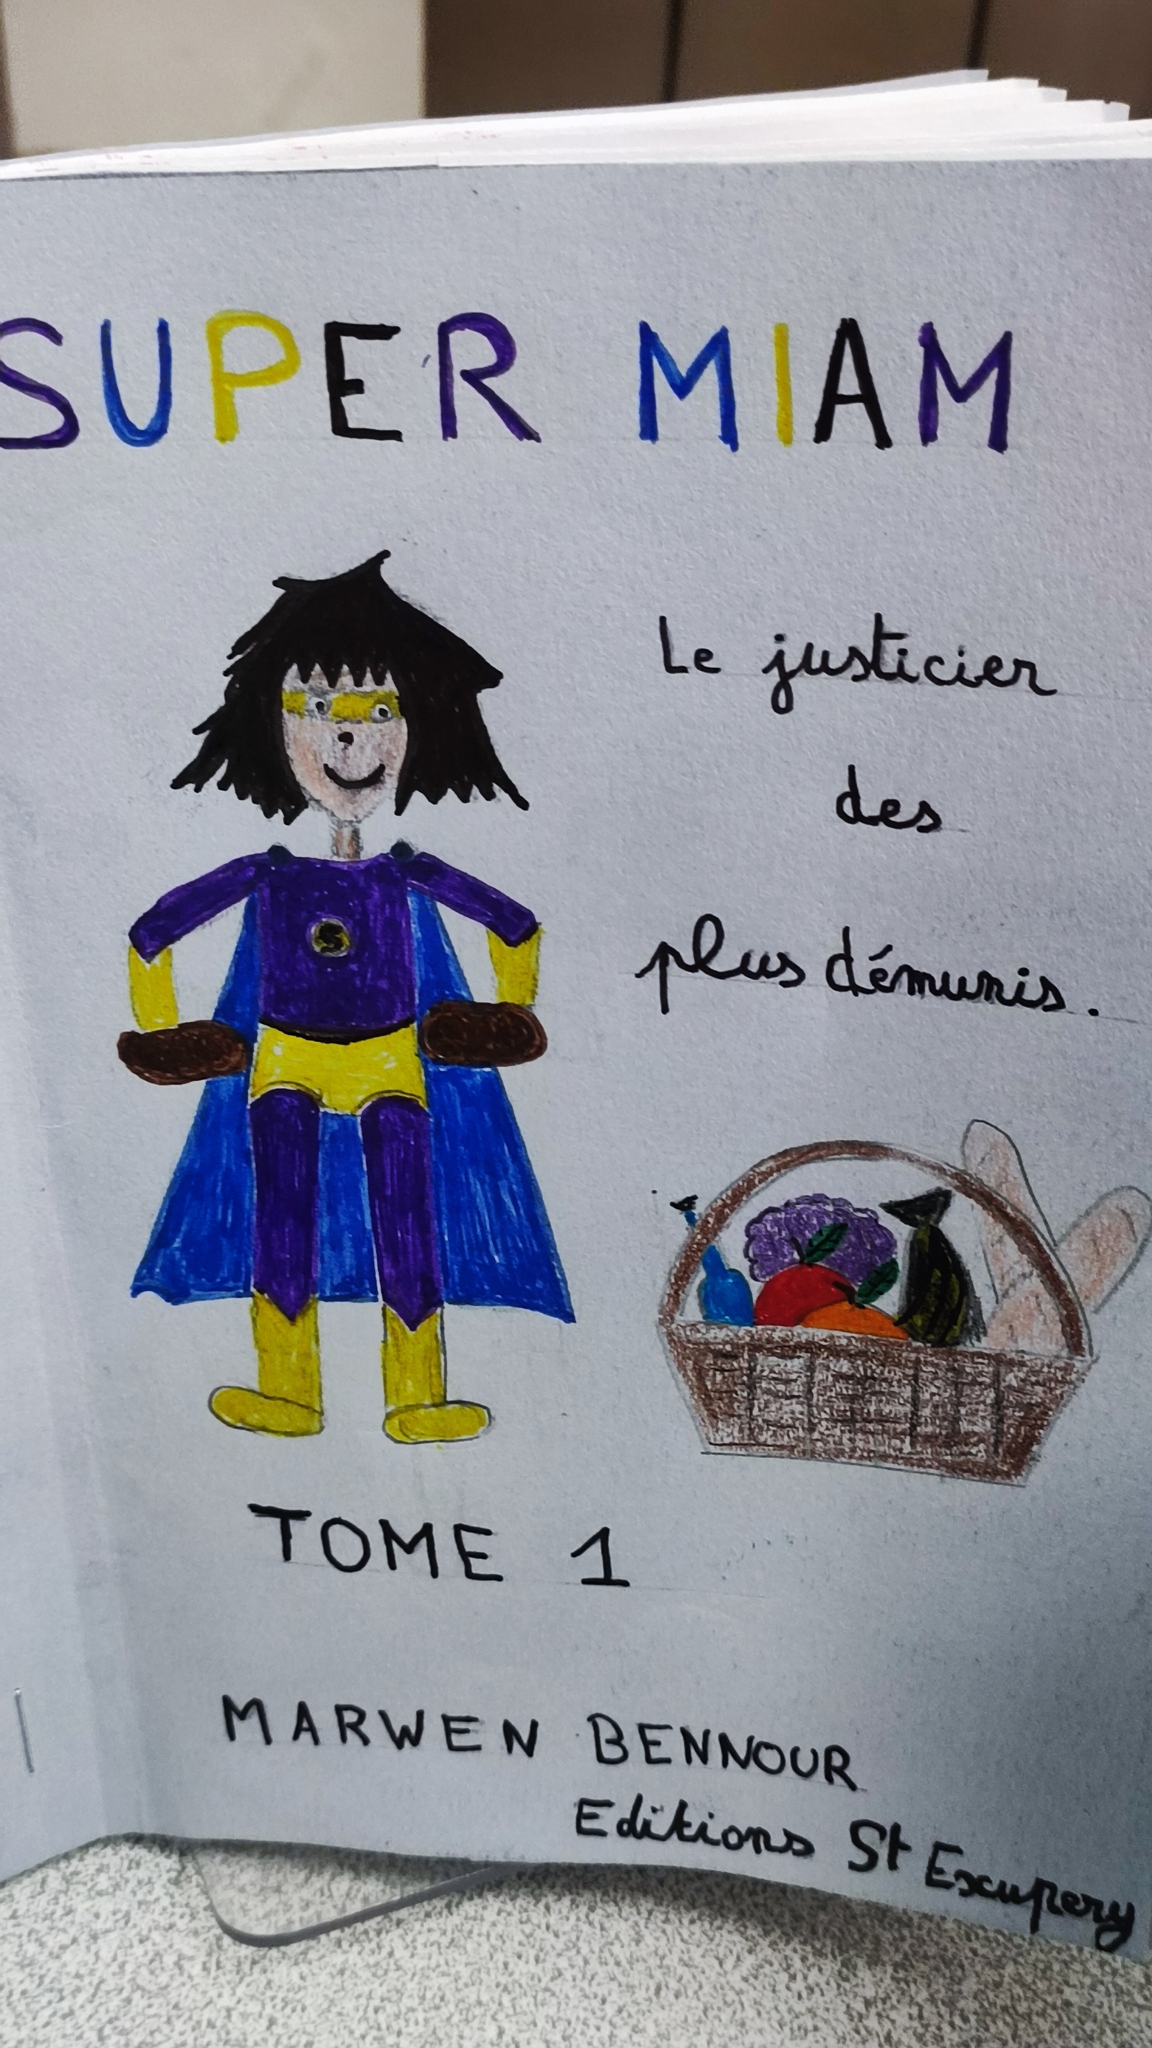 SUPER MIAM
Le justicier
des
plus démunis.
S
TOME 1
MARWEN BENNOUR
Editions St Exupery